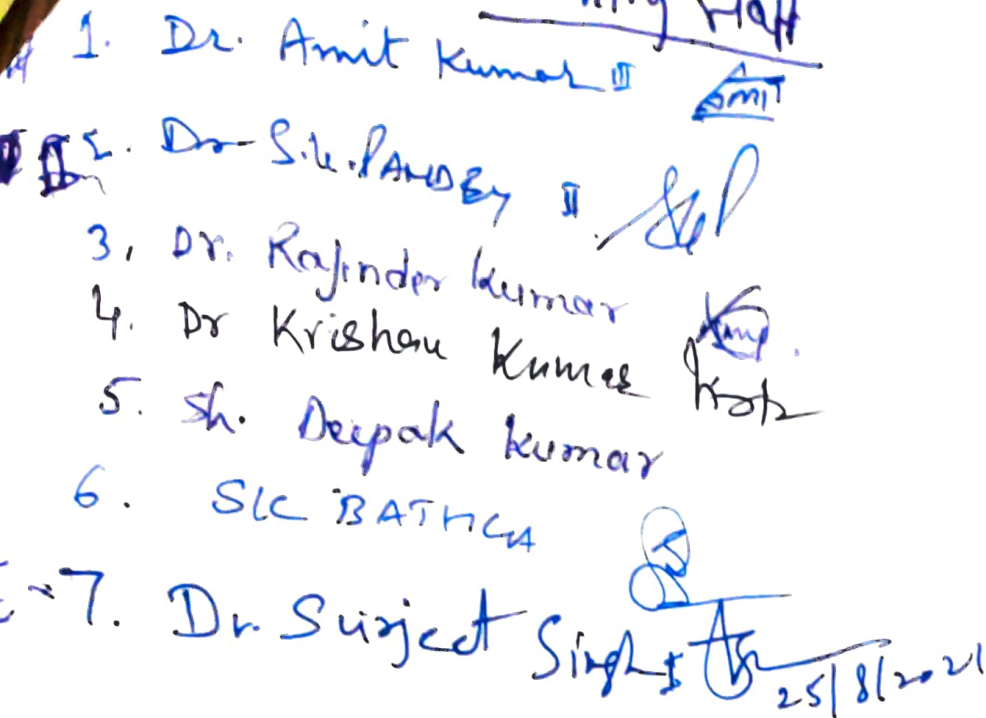 1. Dr. Amit Kumar III Amit
2. Dr S.K. PANDEY II
3, Dr. Rajinder Kumar
4. Dr Krishan Kumar
5. Sh. Deepak Kumar
6. SK BATHLA
7. Dr. Surjeet Singh I 25/8/2021